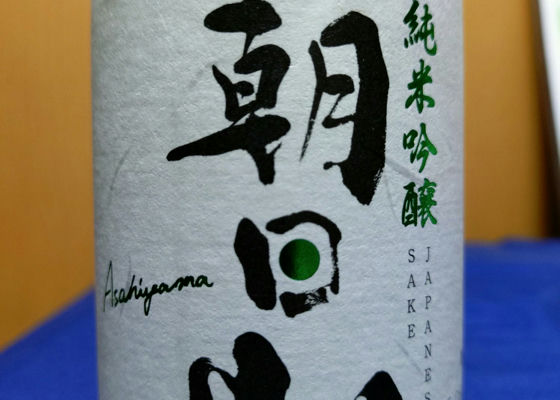 純米吟醸
JAPANES
SAKE
朝日山
Asahiyama